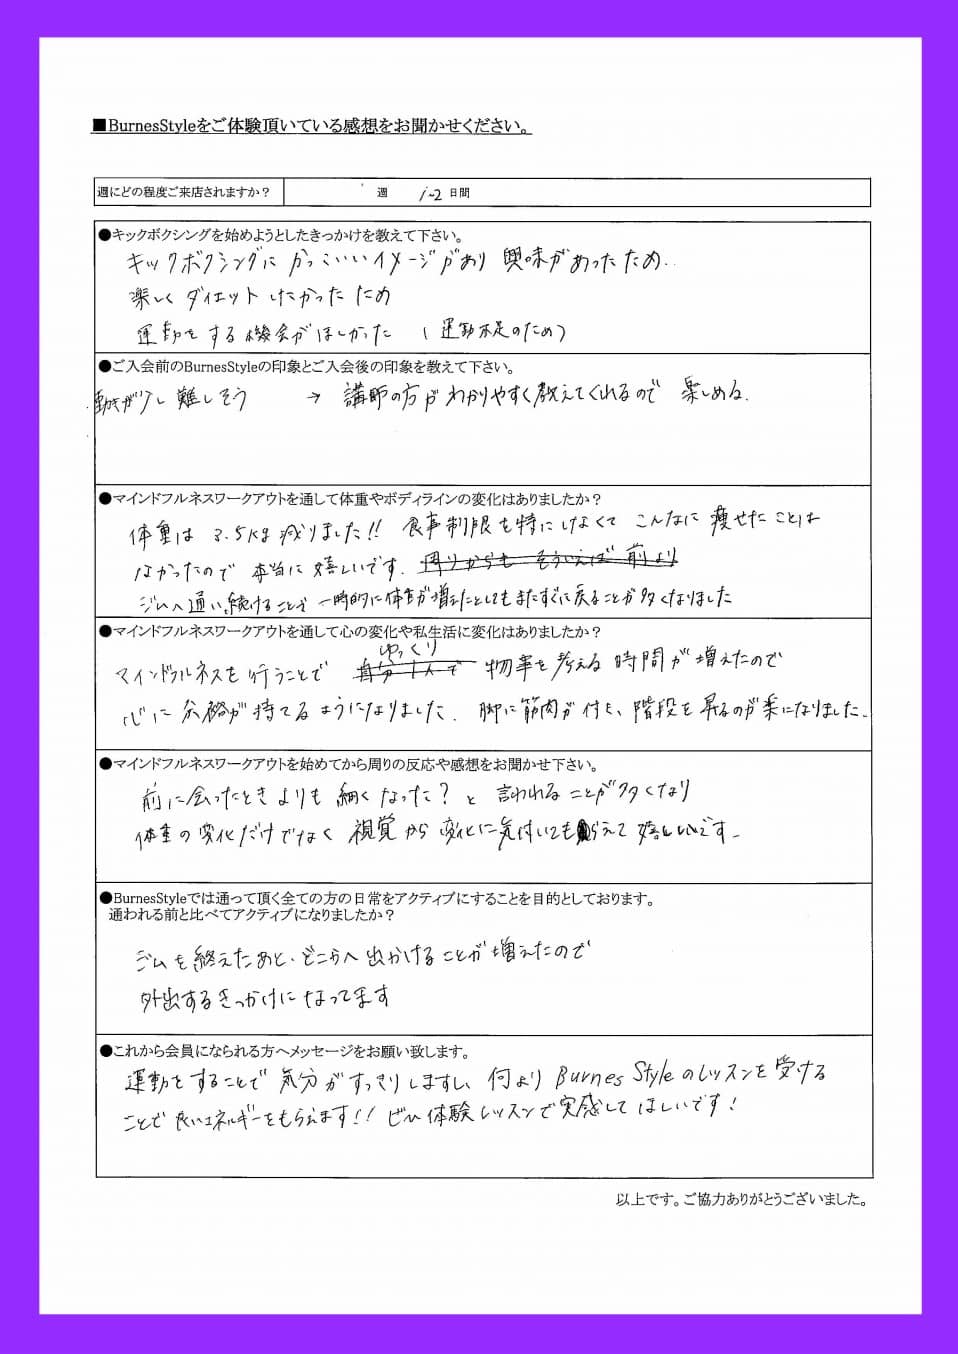 ■BurnesStyleをご体験頂いている感想をお聞かせください。
週にどの程度ご来店されますか？ 週 1~2 日間
●キックボクシングを始めようとしたきっかけを教えて下さい。
キックボクシングにかっこいいイメージがあり 興味があったため..
楽しくダイエットしたかったため
運動をする機会がほしかった (運動不足のため)
●ご入会前のBurnesStyleの印象とご入会後の印象を教えて下さい。
動きが少し難しそう → 講師の方がわかりやすく教えてくれるので 楽しめる.
●マインドフルネスワークアウトを通して体重やボディラインの変化はありましたか？
体重は 3.5kg 減りました!! 食事制限を特にしなくて こんなに 痩せたことは
なかったので 本当に 嬉しいです. 周りからも そういえば 前より
ジムへ通い続けることで 一時的に体重が増えたとしてもまたすぐに戻ることが多くなりました
●マインドフルネスワークアウトを通して心の変化や私生活に変化はありましたか？
ゆっくり
マインドフルネスを行うことで 自分1人で 物事を考える時間が増えたので
心に余裕が持てるようになりました. 脚に筋肉が付き、階段を昇るのが楽になりました.
●マインドフルネスワークアウトを始めてから周りの反応や感想をお聞かせ下さい。
前に会ったときよりも細くなった？と 言われることが多くなり
体重の変化だけでなく 視覚から 変化に気付いてもらえて 嬉しいです.
●BurnesStyleでは通って頂く全ての方の日常をアクティブにすることを目的としております。
通われる前と比べてアクティブになりましたか？
ジムを終えたあと、どこかへ出かけることが増えたので
外出するきっかけになってます
●これから会員になられる方へメッセージをお願い致します。
運動をすることで 気分がすっきりしますし、何より Burnes Style のレッスンを受ける
ことで良いエネルギーをもらえます!! ぜひ体験レッスンで実感してほしいです!
以上です。ご協力ありがとうございました。